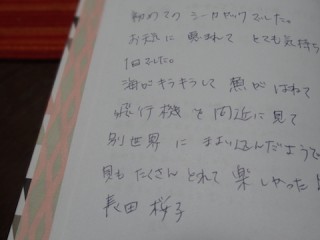 初めてのシーカヤックでした。
お天気に恵まれて とても気持ち
1日でした。
海がキラキラして 魚がはねて
飛行機を間近に見て
別世界に まよい込んだようで
貝もたくさんとれて 楽しかった!
長田 桜子